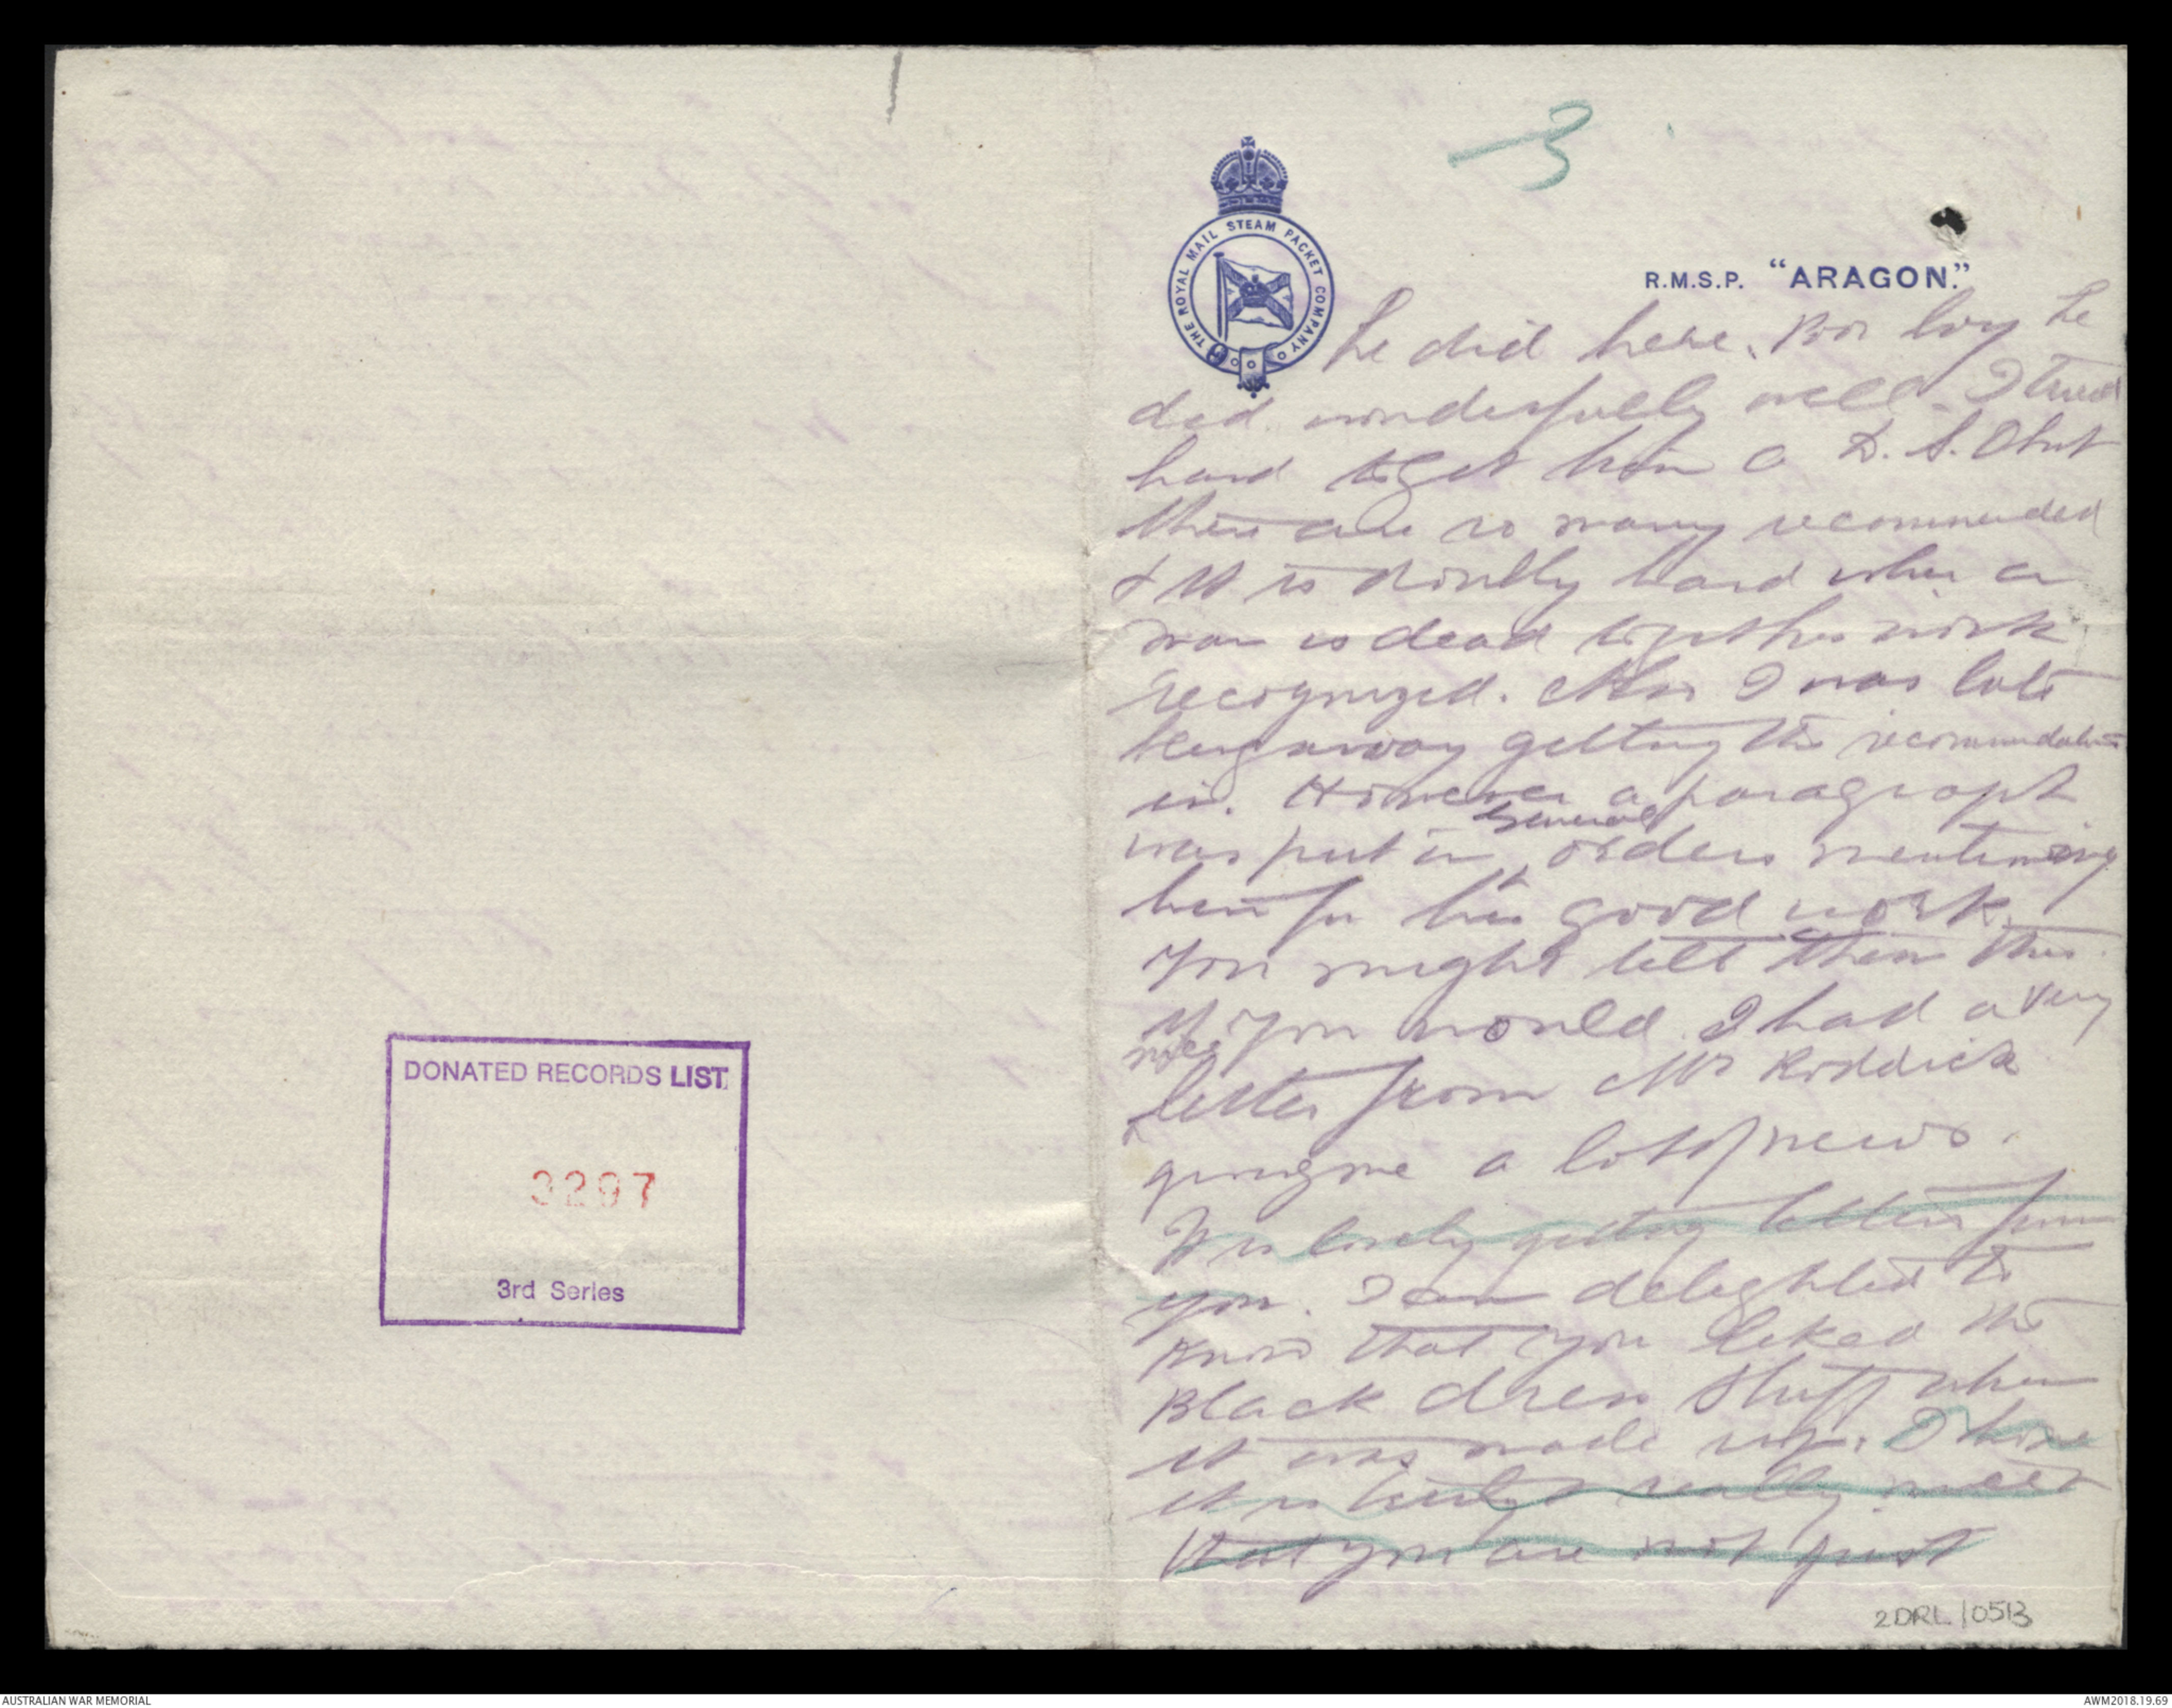 DONATED RECORDS LIST
3297
3rd Series
3
THE ROYAL MAIL STEAM PACKET COMPANY
R.M.S.P. "ARAGON."
he did here. Poor boy he
did wonderfully well. I tried
hard to get him a D.S.O but
there are so many recommended
& it is doubly hard when a
man is dead to get his work
recognized. Also I was late
being away getting the recommendation
in. However a paragraph
was put in General orders mentioning
him for his good work.
You might tell them this
if you would. I had a very
nice letter from Mr Riddick
giving me a lot of news.
It is lovely getting letters from
you. I am delighted to
know that you liked the
Black dress stuff when
it was made up. I hope
it is really
that you are not just
2DRL/0513
AUSTRALIAN WAR MEMORIAL
AWM2018.19.69